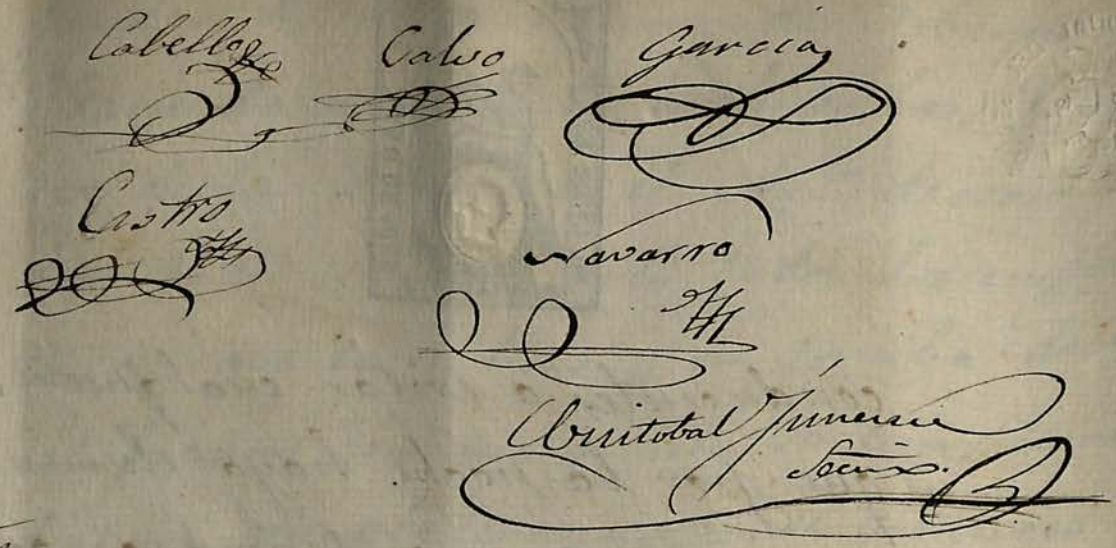 Cabello Calvo Garcia
Castro
Navarro
Cristobal Jimenez